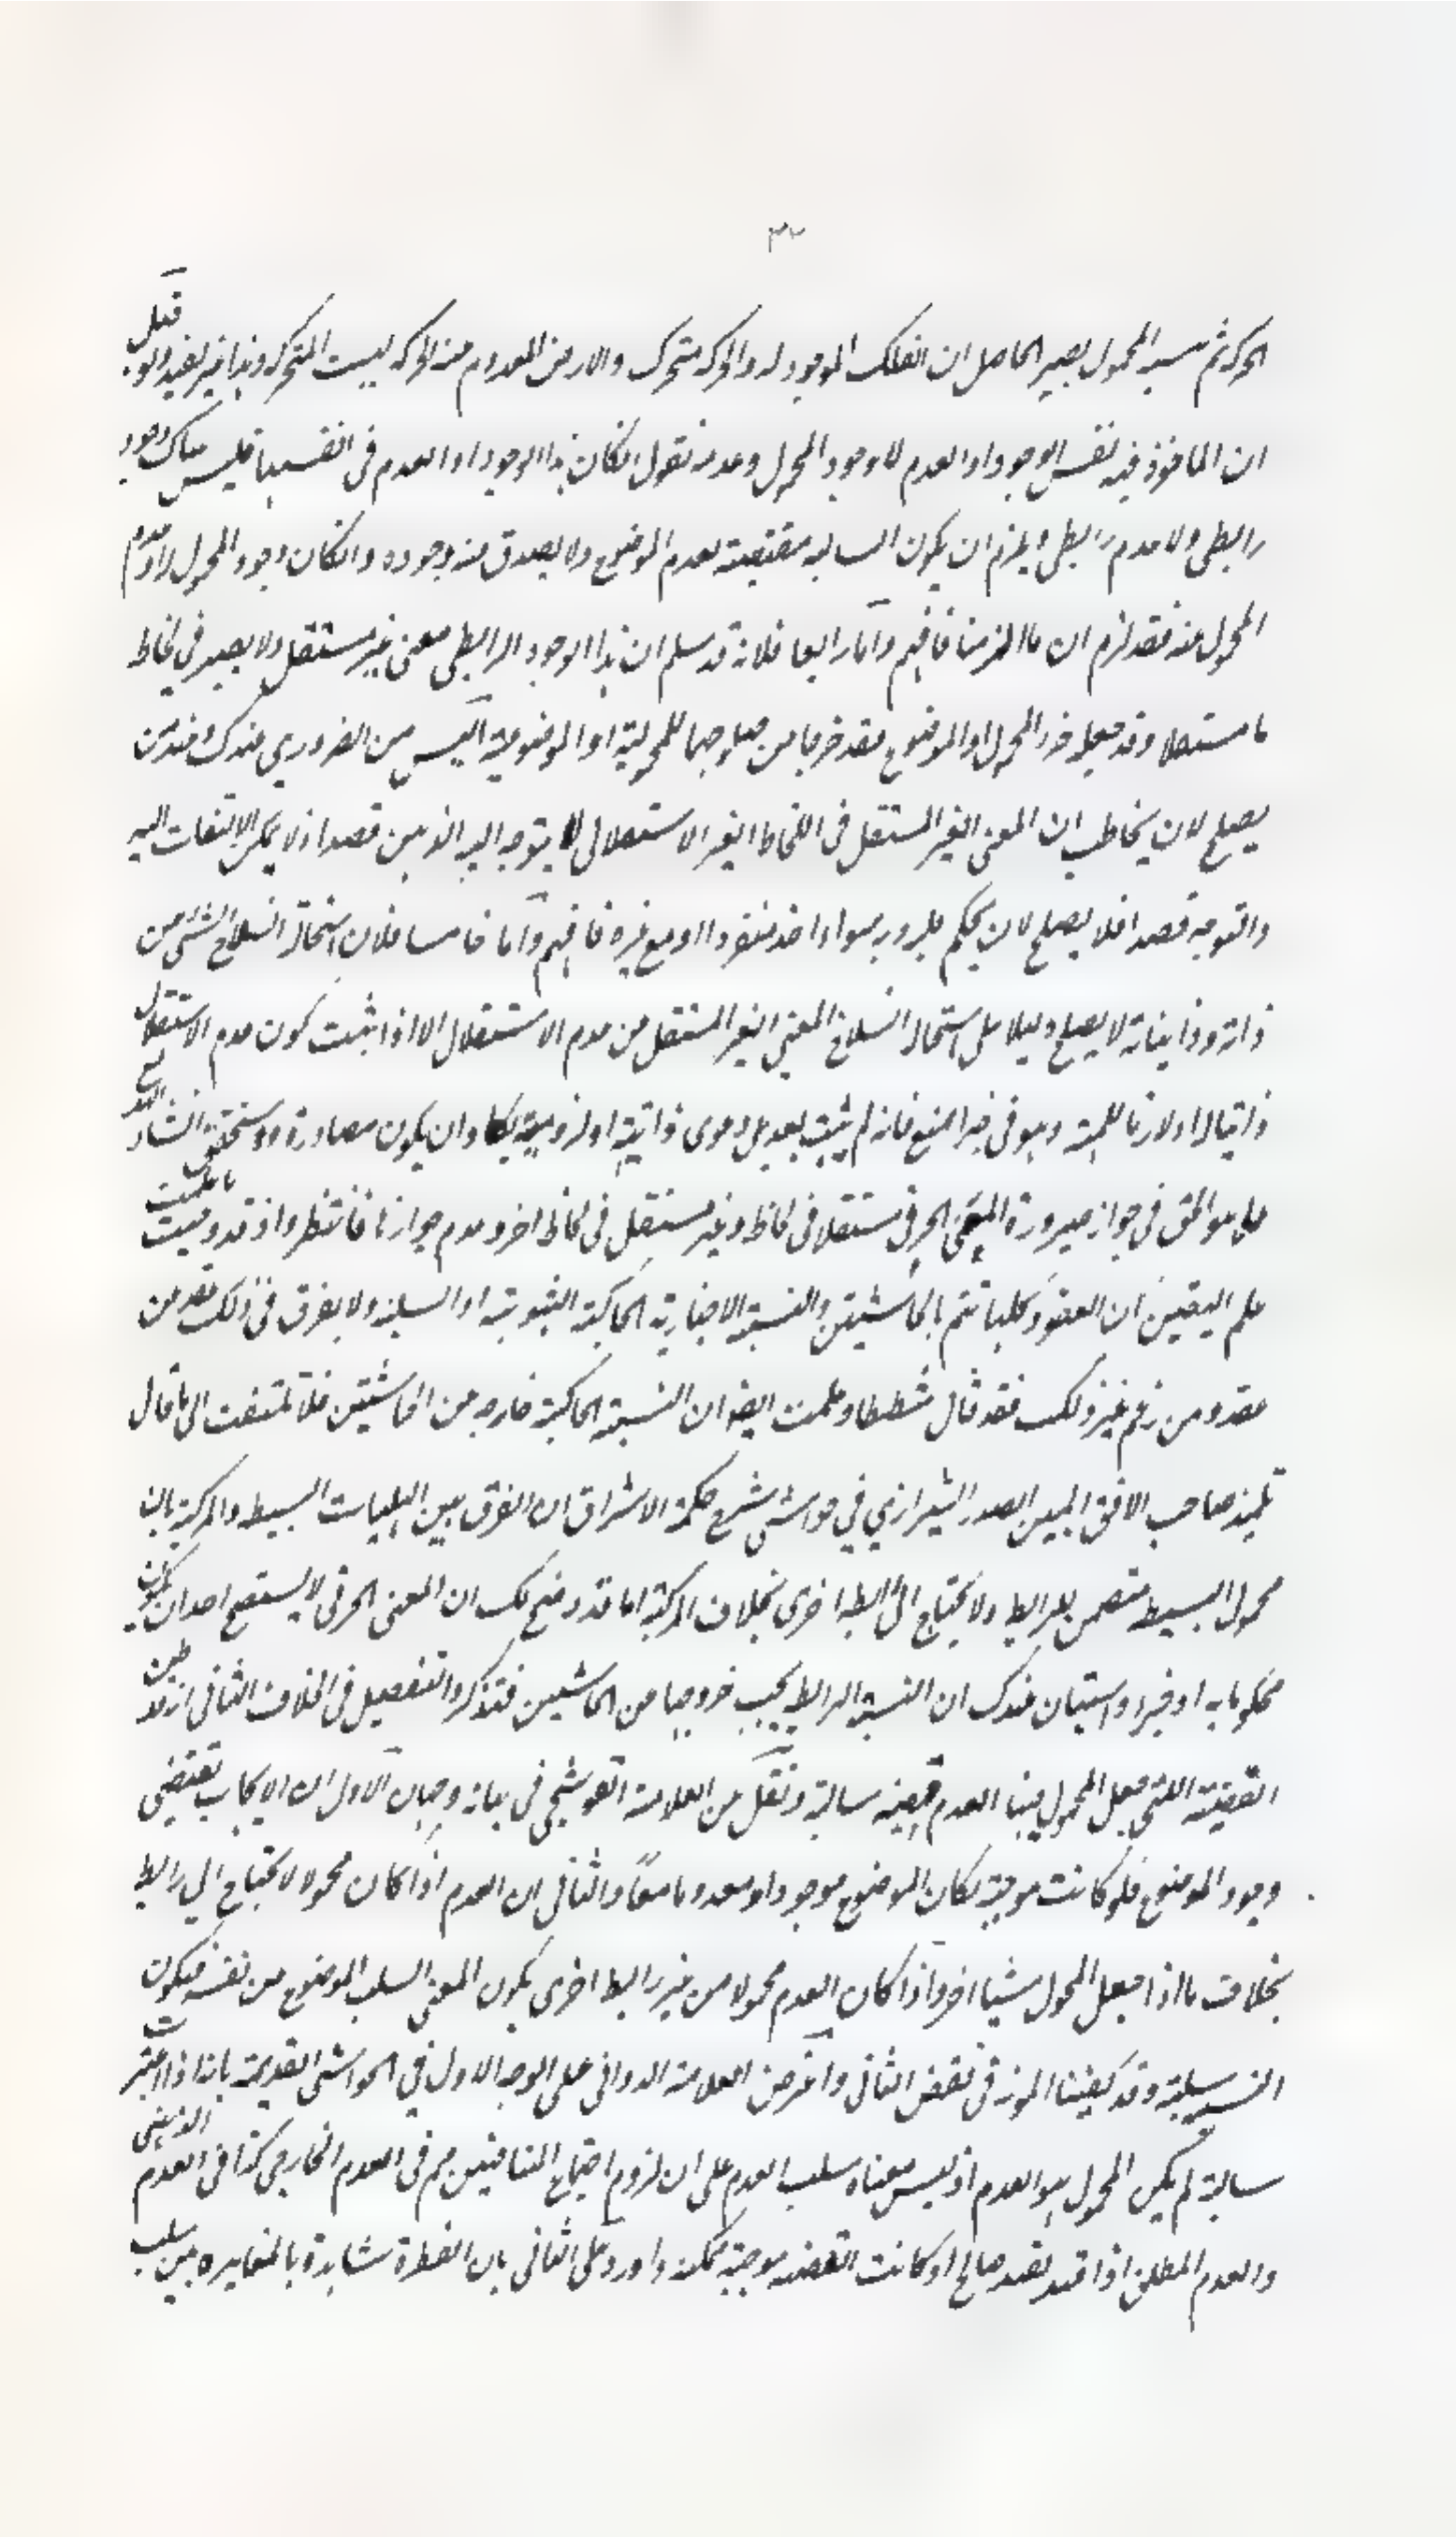 ٣٢
الحركة ثم سير المحمول يصير الحاصل ان الفلك الموجود له والحركة متحرك والارض المعدوم عنه الحركة ليست المتحركة وهذا غير لفيد قيل
ان الماخوذ فيه نفس الوجود او العدم لا وجود المحمول وعدمه نقول انكان هذا الوجود او العدم فى انفسهما فليس هناك وجود
رابطى ولا عدم رابطى ويلزم ان يكون السالبة مقتضية لعدم الموضوع ولا يصدق عند وجوده وانكان وجود المحمول او عدم
المحمول عنه فقد لزم ان ما الزمنا فافهم واما رابعا فلانه قد سلم ان هذا الوجود الرابطى معنى غير مستقل ولا يصير في لحاظ
ما مستقلا وقد جعله جزء المحمول او الموضوع فقد خرجا من صلوحهما للمحمولية او الموضوعية اليس من الضروري عندك وعند من
يصلح لان يخاطب ان المعنى الغير المستقل فى اللحاظ الغير الاستقلالى لا يتوجه اليه الذهن قصدا اذ لا يمكن الالتفات اليه
والتوجه قصدا فلا يصلح لان يحكم عليه وبه سواء اخذ منفردا او مع غيره فافهم واما خامسا فلان استحالة انسلاخ الشئ من
ذاته وذاتياته لا يصلح دليلا على استحالة انسلاخ المعنى الغير المستقل من عدم الاستقلال الا اذا ثبت كون عدم الاستقلال
ذاتيا له او لازما للمهية وهو فى حيز المنع فانه لم يثبت بعد بل دعوى ذاتيته او لزوميته يكاد ان يكون مصادرة وسنحقق انشاء الله تع
على ما هو الحق في جواز صيرورة المعنى الحرفى مستقلا فى لحاظ وغير مستقل فى لحاظ اخر وعدم جوازها فانتظر واذ قد دريت ما علمت
علم اليقين ان العقود كلها تتم بالحاشيتين والنسبة الاخبارية الحاكية الثبوتية او السلبية ولا يفرق فى ذلك عقد من
عقد ومن زعم غير ذلك فقد قال شططا وعلمت ايضا ان النسبة الحاكية خارجة من الحاشيتين فلا تلتفت الى ما قال
تلميذ صاحب الافق المبين الصدر الشيرازي في حواشى شرح حكمة الاشراق ان الفرق بين الهليات البسيط والمركبة بان
محمول البسيط متضمن للرابط ولا يحتاج الى رابطة اخرى بخلاف المركبة اما قد وضح لك ان المعنى الحرفى لا يستصح احد ان يكون
محكوما به او فيه واستبان عندك ان النسبة الرابط يجب خروجها من الحاشيتين فتذكر التفصيل فى الخلاف الثانى انه قد ظن
القضية التى جعل المحمول فيها العدم قضية سالبة ونقل عن العلامة القوشجى فى بيانه وجهان الاول ان الايجاب تقتضى
وجود الموضوع فلو كانت موجبة لكان الموضوع موجودا ومعدوما معًا والثانى ان العدم اذا كان محمولا لا يحتاج الي رابط
بخلاف ما اذا جعل المحمول شيئا اخر واذا كان العدم محمولا من غير رابط اخرى يكون المعنى السلب الموضوع من نفسه فيكون
النسبة سلبية وقد كفينا المونة فى نقض الثانى واعترض العلامة الدوانى على الوجه الاول في الحواشى القديمة بانه اذا اعتبرت
سالبة لم يكن المحمول هو العدم اذ ليس معناه سلب العدم على ان لزوم اجتماع المتنافيين مم فى العدم الخارجى كذا فى العدم الذهنى
والعدم المطلق اذا قيد بقيد صالح او كانت القضية موجبة ممكنة واورد على الثانى بان الفطرة شاهدة بالمغايرة بين سلب